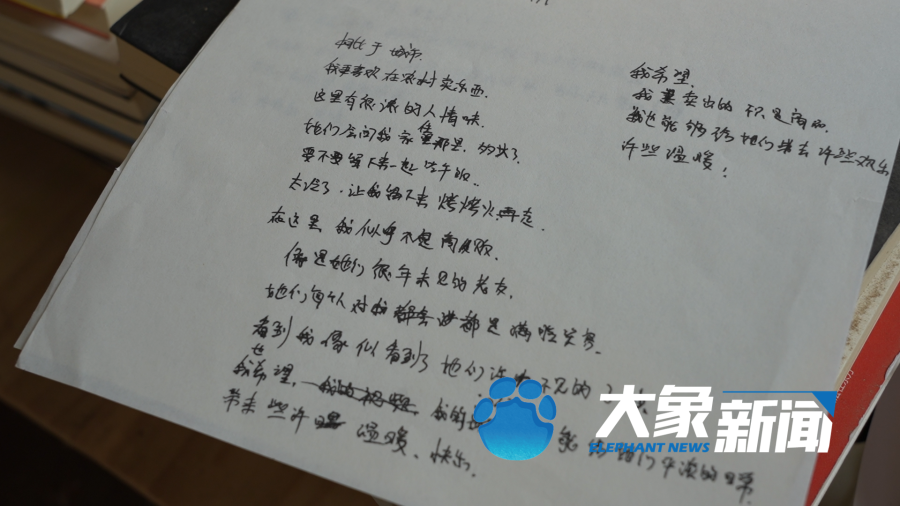 相比于城市.
我更喜欢在农村卖东西.
这里有很浓的人情味.
她们会问我家住那里.多大了.
要不要留下来一起吃午饭..
太冷了.让我留下来烤烤火再走.
在这里 我似乎不是商贩.
像是她们很年未见的老友.
她们每个人对我都是满脸笑容.
看到我像似看到了她们许 不见的
也
我希望. 我的 能给她们平淡的日常
带来些许 温暖、快乐.
我希望.
我 卖出的不只是商品.
我也能够给她们带去许些欢乐
许些温暖!
大象新闻
ELEPHANT NEWS